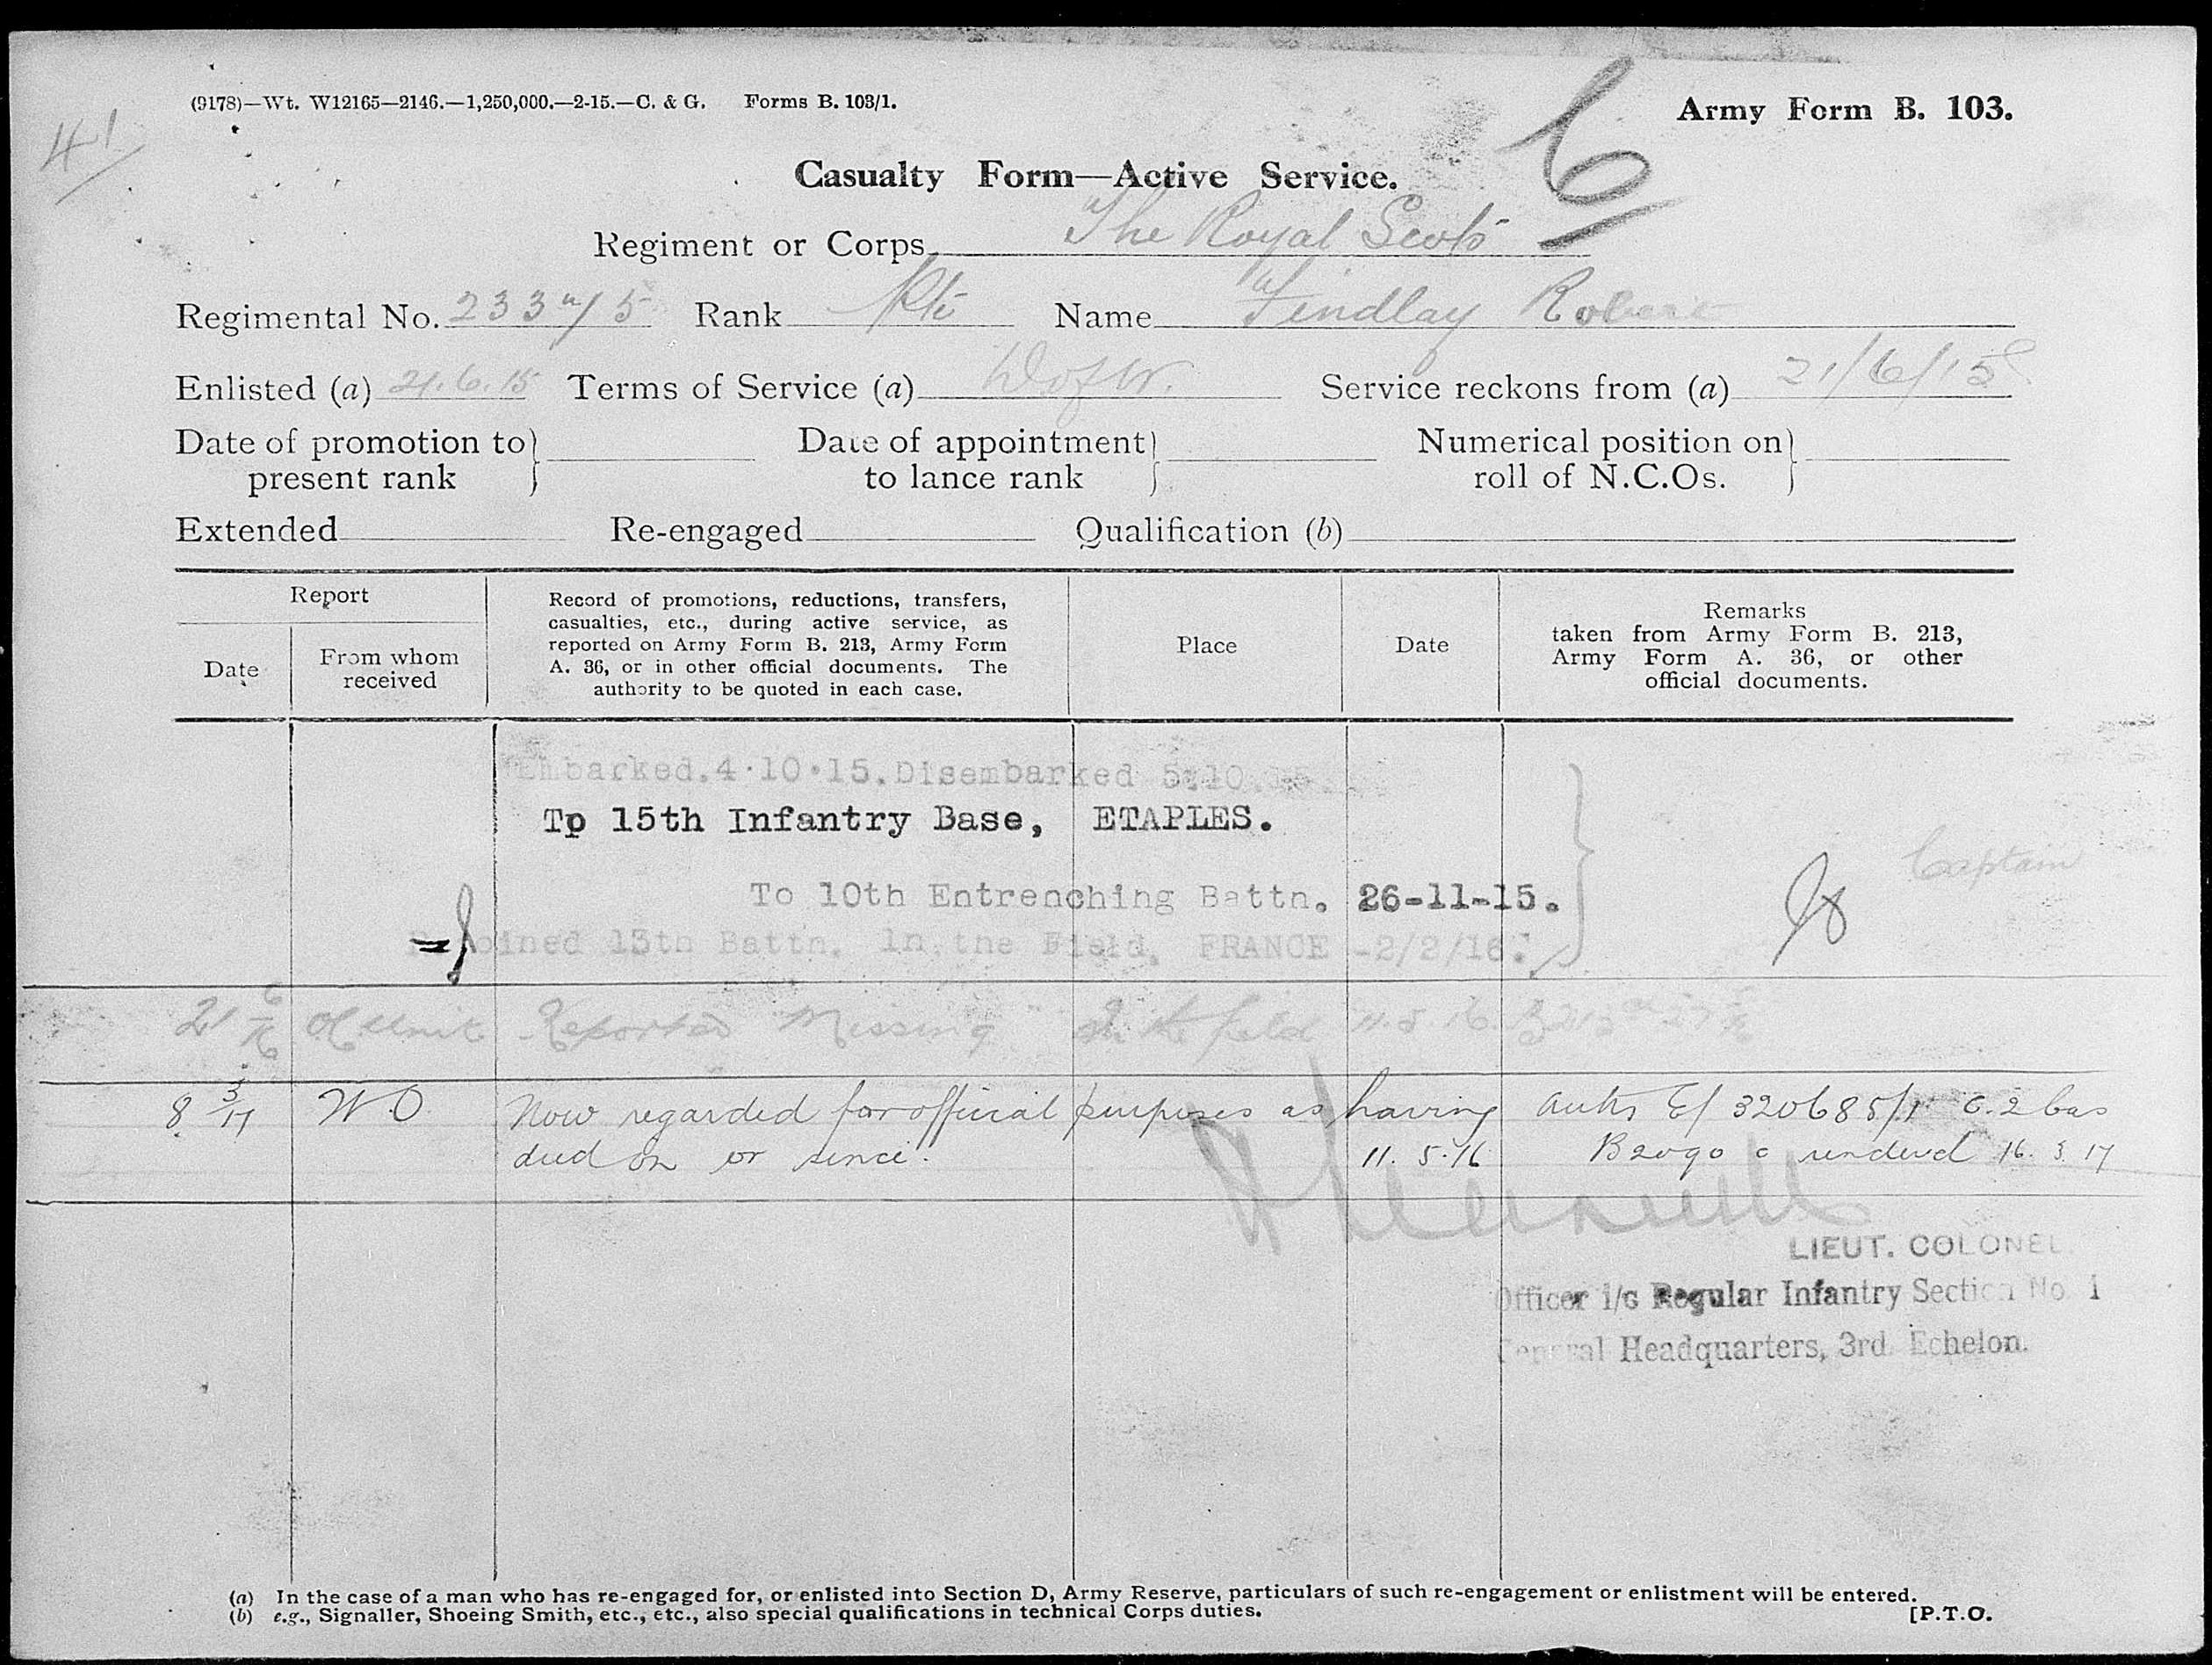 (9178)—Wt. W12165—2146.—1,250,000.—2-15.—C. & G. Forms B. 103/1.
Army Form B. 103.
41
6
Casualty Form—Active Service.
Regiment or Corps The Royal Scots
Regimental No. Rank Pte Name Findlay Robert
Enlisted (a) 21.6.15 Terms of Service (a) D of W. Service reckons from (a) 21/6/15
Date of promotion to present rank
Date of appointment to lance rank
Numerical position on roll of N.C.Os.
Extended Re-engaged Qualification (b)
Report
Date
From whom received
Record of promotions, reductions, transfers,
casualties, etc., during active service, as
reported on Army Form B. 213, Army Form
A. 36, or in other official documents. The
authority to be quoted in each case.
Place
Date
Remarks
taken from Army Form B. 213,
Army Form A. 36, or other
official documents.
Embarked.4.10.15.Disembarked 5.10.15.
To 15th Infantry Base, ETAPLES.
Captain
To 10th Entrenching Battn. 26-11-15.
joined 13th Battn. In the Field. FRANCE -2/2/16.
21 6/16 OC Unit Reported "Missing" In the field 11.5.16. B213
8 3/17 W.O. Now regarded for official purposes as having
died on or since. 11.5.16
Auth E/320685/1 C.2 Cas
B2090a rendered 16.3.17
LIEUT. COLONEL.
Officer i/c Regular Infantry Section No 1
General Headquarters, 3rd. Echelon.
(a) In the case of a man who has re-engaged for, or enlisted into Section D, Army Reserve, particulars of such re-engagement or enlistment will be entered.
(b) e.g., Signaller, Shoeing Smith, etc., etc., also special qualifications in technical Corps duties.
[P.T.O.